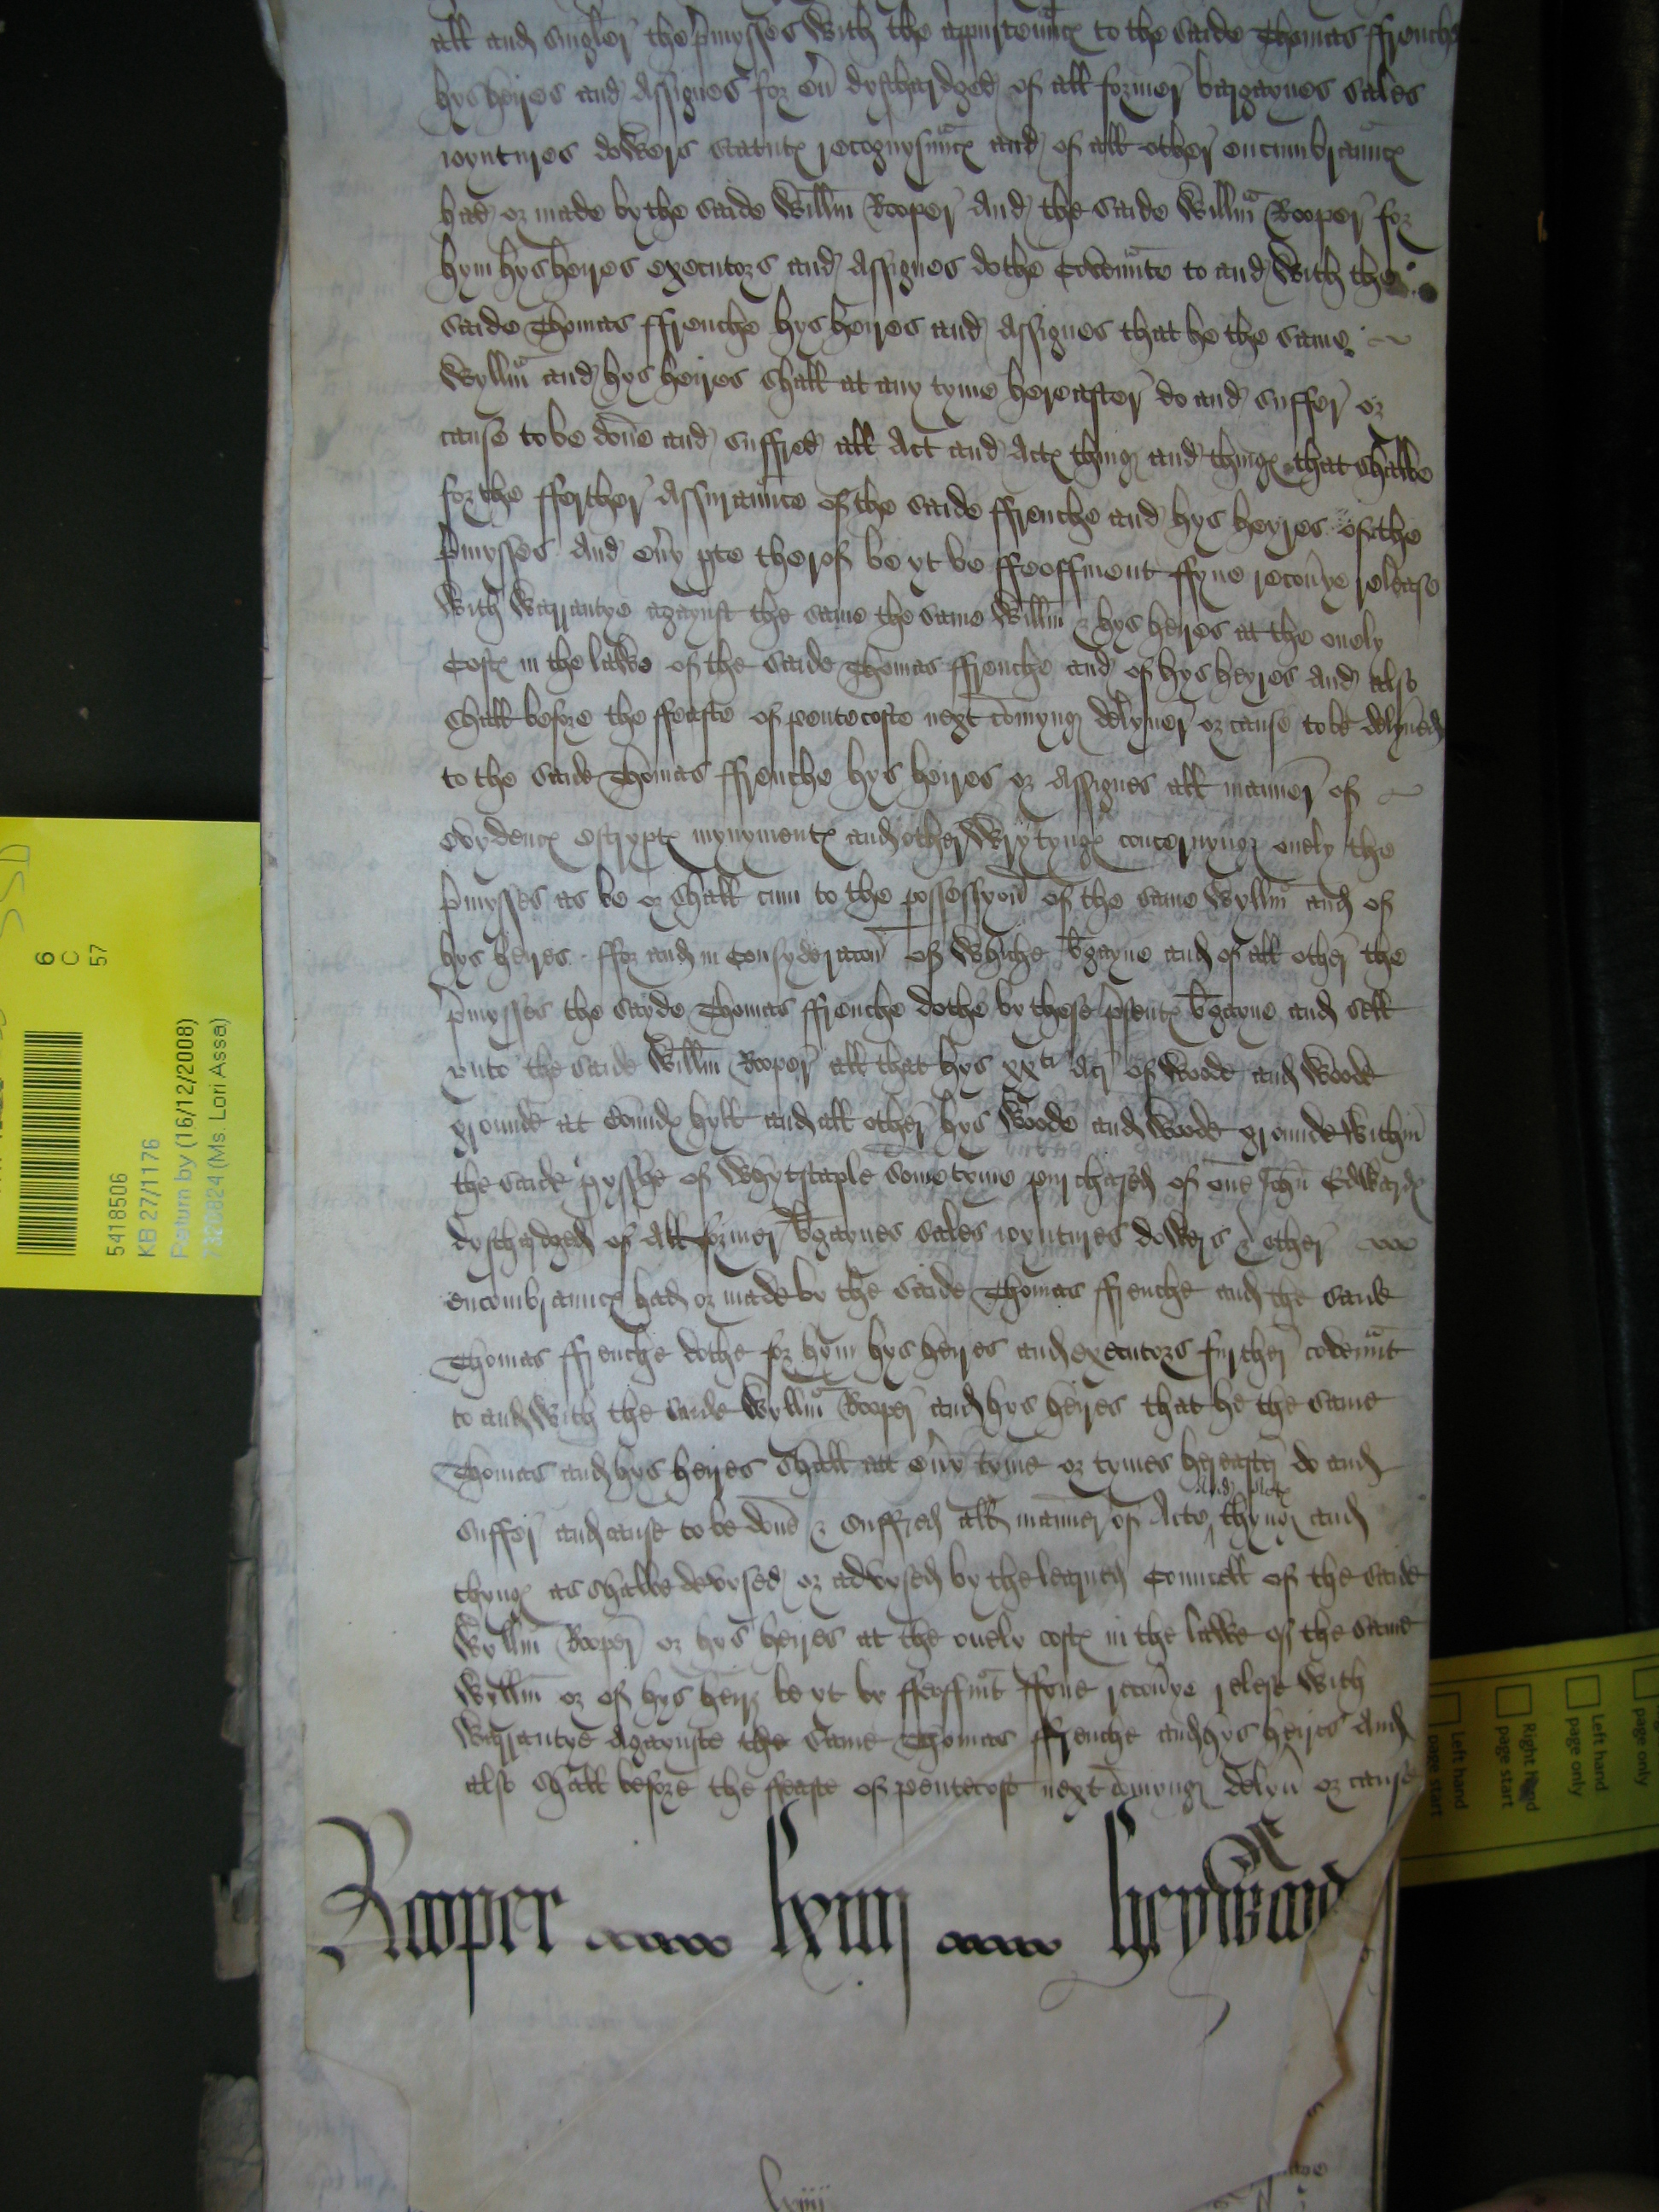 all and singler the pmysses with the appurtenncs to the saide Thomas ffrenche
hys heires and Assignes for evr dyschardged of all former bargaynes sales
ioyntures dowers statuts recognysunncs and of all other encumbrauncs
had or made by the saide Willm Rooper And the saide Willm Rooper for
hym hys heires executors and Assignes dothe Covennte to and with the
saide Thomas ffrenche hys heires and Assignes that he the same
Wyllm and hys heires shall at any tyme hereafter do and suffer or
cause to be done and suffred all Act and Acts thing and things that shalbe
for the fferther Assuraunce of the saide ffrenche and hys heyres of the
pmysses And evy pte therof be yt be ffeoffment ffyne recovye release
with warrantye agaynst the same the same Willm & hys heires at the onely
Costs in the lawe of the saide Thomas ffrenche and of hys heyres And also
shall before the ffeaste of pentecoste next comyng delyver or cause to be delyved
to the saide Thomas ffrenche hys heires or Assignes all manner of
evydencs escrypts mynyments and other wrytyngs concernyng onely the
pmysses as be or shall cum to the possessyon of the same Wyllm and of
hys heires ffor and in Consyderacon of whiche bgayne and of all other the
pmysses the sayde Thomas ffrenche dothe by these psents bgayne and sell
unto the saide Willm Rooper all that hys xxti Acr of woode and woode
grounde at hyll and all other hys woode and woode grounde within
the saide pysshe of Whytstaple sometyme purchased of one John Edwards
dyschardged of All former bgaynes sales ioyntures dowers & other
encombrauncs had or made by the saide Thomas ffrenche and the saide
Thomas ffrenche dothe for hym hys heires and executors further covennt
to and with the saide Wyllm Rooper and hys heires that he the same
Thomas and hys heires shall att evy tyme or tymes hereafter do and
and Acts
suffer and cause to be done & suffred all manner of Acte thyng and
thyngs as shalbe devysed or advysed by the lerned Councell of the saide
Wyllm Rooper or hys heires at the onely costs in the lawe of the same
Wyllm or of hys heirs be yt by ffeoffmt ffyne recovye relese with
warrantye Agaynste the same Thomas ffrenche and hys heires And
also shall before the ffeaste of pentecost next comyng delyv or cause
Rooper lxiiij heyward
lxiiij
6
C
57
5418506
KB 27/1176
Return by (16/12/2008)
(Ms. Lori Assa)
Left hand
page start
Right hand
page start
Left hand
page only
page only